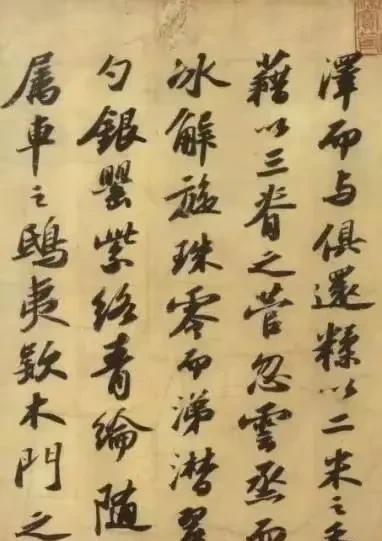 澤而与俱還糅以二米之
藉以三脊之菅忽雲烝而
冰解旋珠零而涕潸翠
勺銀罌紫絡青綸随
属車之鴟夷欵木門之